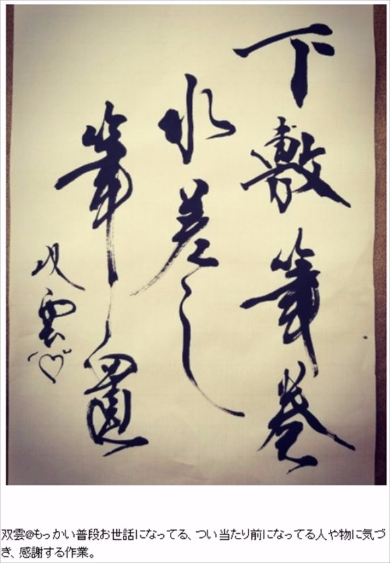 下敷筆巻
水差し
筆置
双雲♡
双雲@もっかい普段お世話になってる、つい当たり前になってる人や物に気づ
き、感謝する作業。